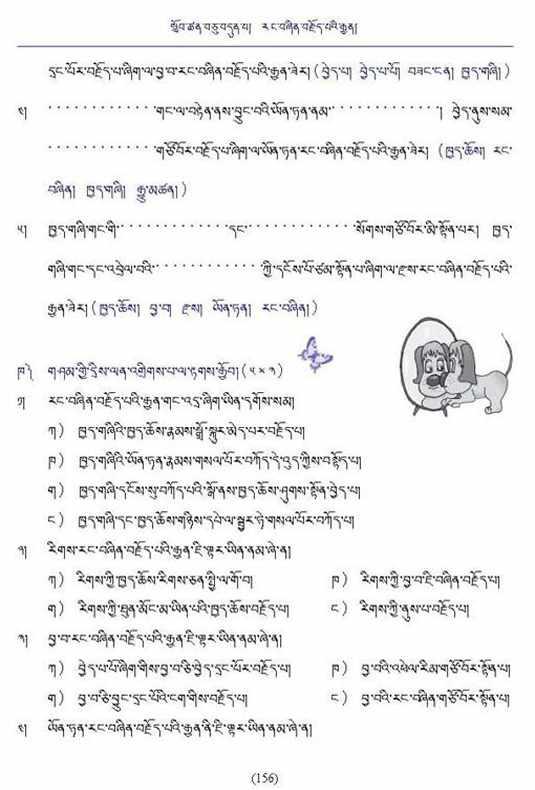 སློབ་ཚན་བཅུ་བདུན་པ། རང་བཞིན་བརྗོད་པའི་རྒྱན།
དྲང་པོར་བརྗོད་པ་ཞིག་ལ་བྱ་བ་རང་བཞིན་བརྗོད་པའི་རྒྱན་ཟེར། (བྱེད་པ། བྱེད་པ་པོ། བཟང་ངན། ཁྱད་གཞི།)
༤། ་་་་་་་་་་་་་གང་ལ་བརྟེན་ནས་བྱུང་བའི་ཡོན་ཏན་ནམ་་་་་་་་་་་་་། བྱེད་ནུས་སམ་
་་་་་་་་་་་་་གཙོ་བོར་བརྗོད་པ་ཞིག་ལ་ཡོན་ཏན་རང་བཞིན་བརྗོད་པའི་རྒྱན་ཟེར། (ཁྱད་ཆོས། རང་
བཞིན། ཁྱད་གཞི། རྒྱུ་མཚན།)
༥། ཁྱད་གཞི་གང་གི་་་་་་་་་་་་་དང་་་་་་་་་་་་་སོགས་གཙོ་བོར་མི་སྟོན་པར། ཁྱད་
གཞི་གང་དང་འབྲེལ་བའི་་་་་་་་་་་་་ཀྱི་དངོས་པོ་ཙམ་སྟོན་པ་ཞིག་ལ་རྫས་རང་བཞིན་བརྗོད་པའི་
རྒྱན་ཟེར། (ཁྱད་ཆོས། བྱ་བ། རྫས། ཡོན་ཏན། རང་བཞིན།)
ཁ༽ གཤམ་གྱི་དྲིས་ལན་འགྲིགས་པ་ལ་རྟགས་རྒྱོབ། (༥×༡)
༡། རང་བཞིན་བརྗོད་པའི་རྒྱན་གང་འདྲ་ཞིག་ཡིན་དགོས་སམ།
ཀ) ཁྱད་གཞིའི་ཁྱད་ཆོས་རྣམས་སྒྲོ་སྐུར་མེད་པར་བརྗོད་པ།
ཁ) ཁྱད་གཞིའི་ཡོན་ཏན་རྣམས་གསལ་པོར་བཀོད་དེ་འུད་ཀྱིས་བསྟོད་པ།
ག) ཁྱད་གཞི་དངོས་སུ་བཀོད་པའི་སྒོ་ནས་ཁྱད་ཆོས་ཤུགས་སྟོན་བྱེད་པ།
ང) ཁྱད་གཞི་དང་ཁྱད་ཆོས་གཉིས་དཔེ་ལ་སྦྱར་ཏེ་གསལ་པོར་བཀོད་པ།
༢། རིགས་རང་བཞིན་བརྗོད་པའི་རྒྱན་ཇི་ལྟར་ཡིན་ནམ་ཞེ་ན།
ཀ) རིགས་ཀྱི་ཁྱད་ཆོས་རིགས་ཅན་སྤྱི་ལ་གོ་བ། ཁ) རིགས་ཀྱི་བྱ་བ་ཇི་བཞིན་བརྗོད་པ།
ག) རིགས་ཀྱི་ཐུན་མོང་མ་ཡིན་པའི་ཁྱད་ཆོས་བརྗོད་པ། ང) རིགས་ཀྱི་ནུས་པ་བརྗོད་པ།
༣། བྱ་བ་རང་བཞིན་བརྗོད་པའི་རྒྱན་ཇི་ལྟར་ཡིན་ནམ་ཞེ་ན།
ཀ) བྱེད་པ་པོ་ཞིག་གིས་བྱ་བ་ཅི་བྱེད་དྲང་པོར་བརྗོད་པ། ཁ) བྱ་བའི་འཕེལ་རིམ་གཙོ་བོར་སྟོན་པ།
ག) བྱ་བ་ཅི་བྱུང་དྲང་པོའི་ངག་གིས་བརྗོད་པ། ང) བྱ་བའི་རང་བཞིན་གཙོ་བོར་སྟོན་པ།
༤། ཡོན་ཏན་རང་བཞིན་བརྗོད་པའི་རྒྱན་ནི་ཇི་ལྟར་ཡིན་ནམ་ཞེ་ན།
(156)